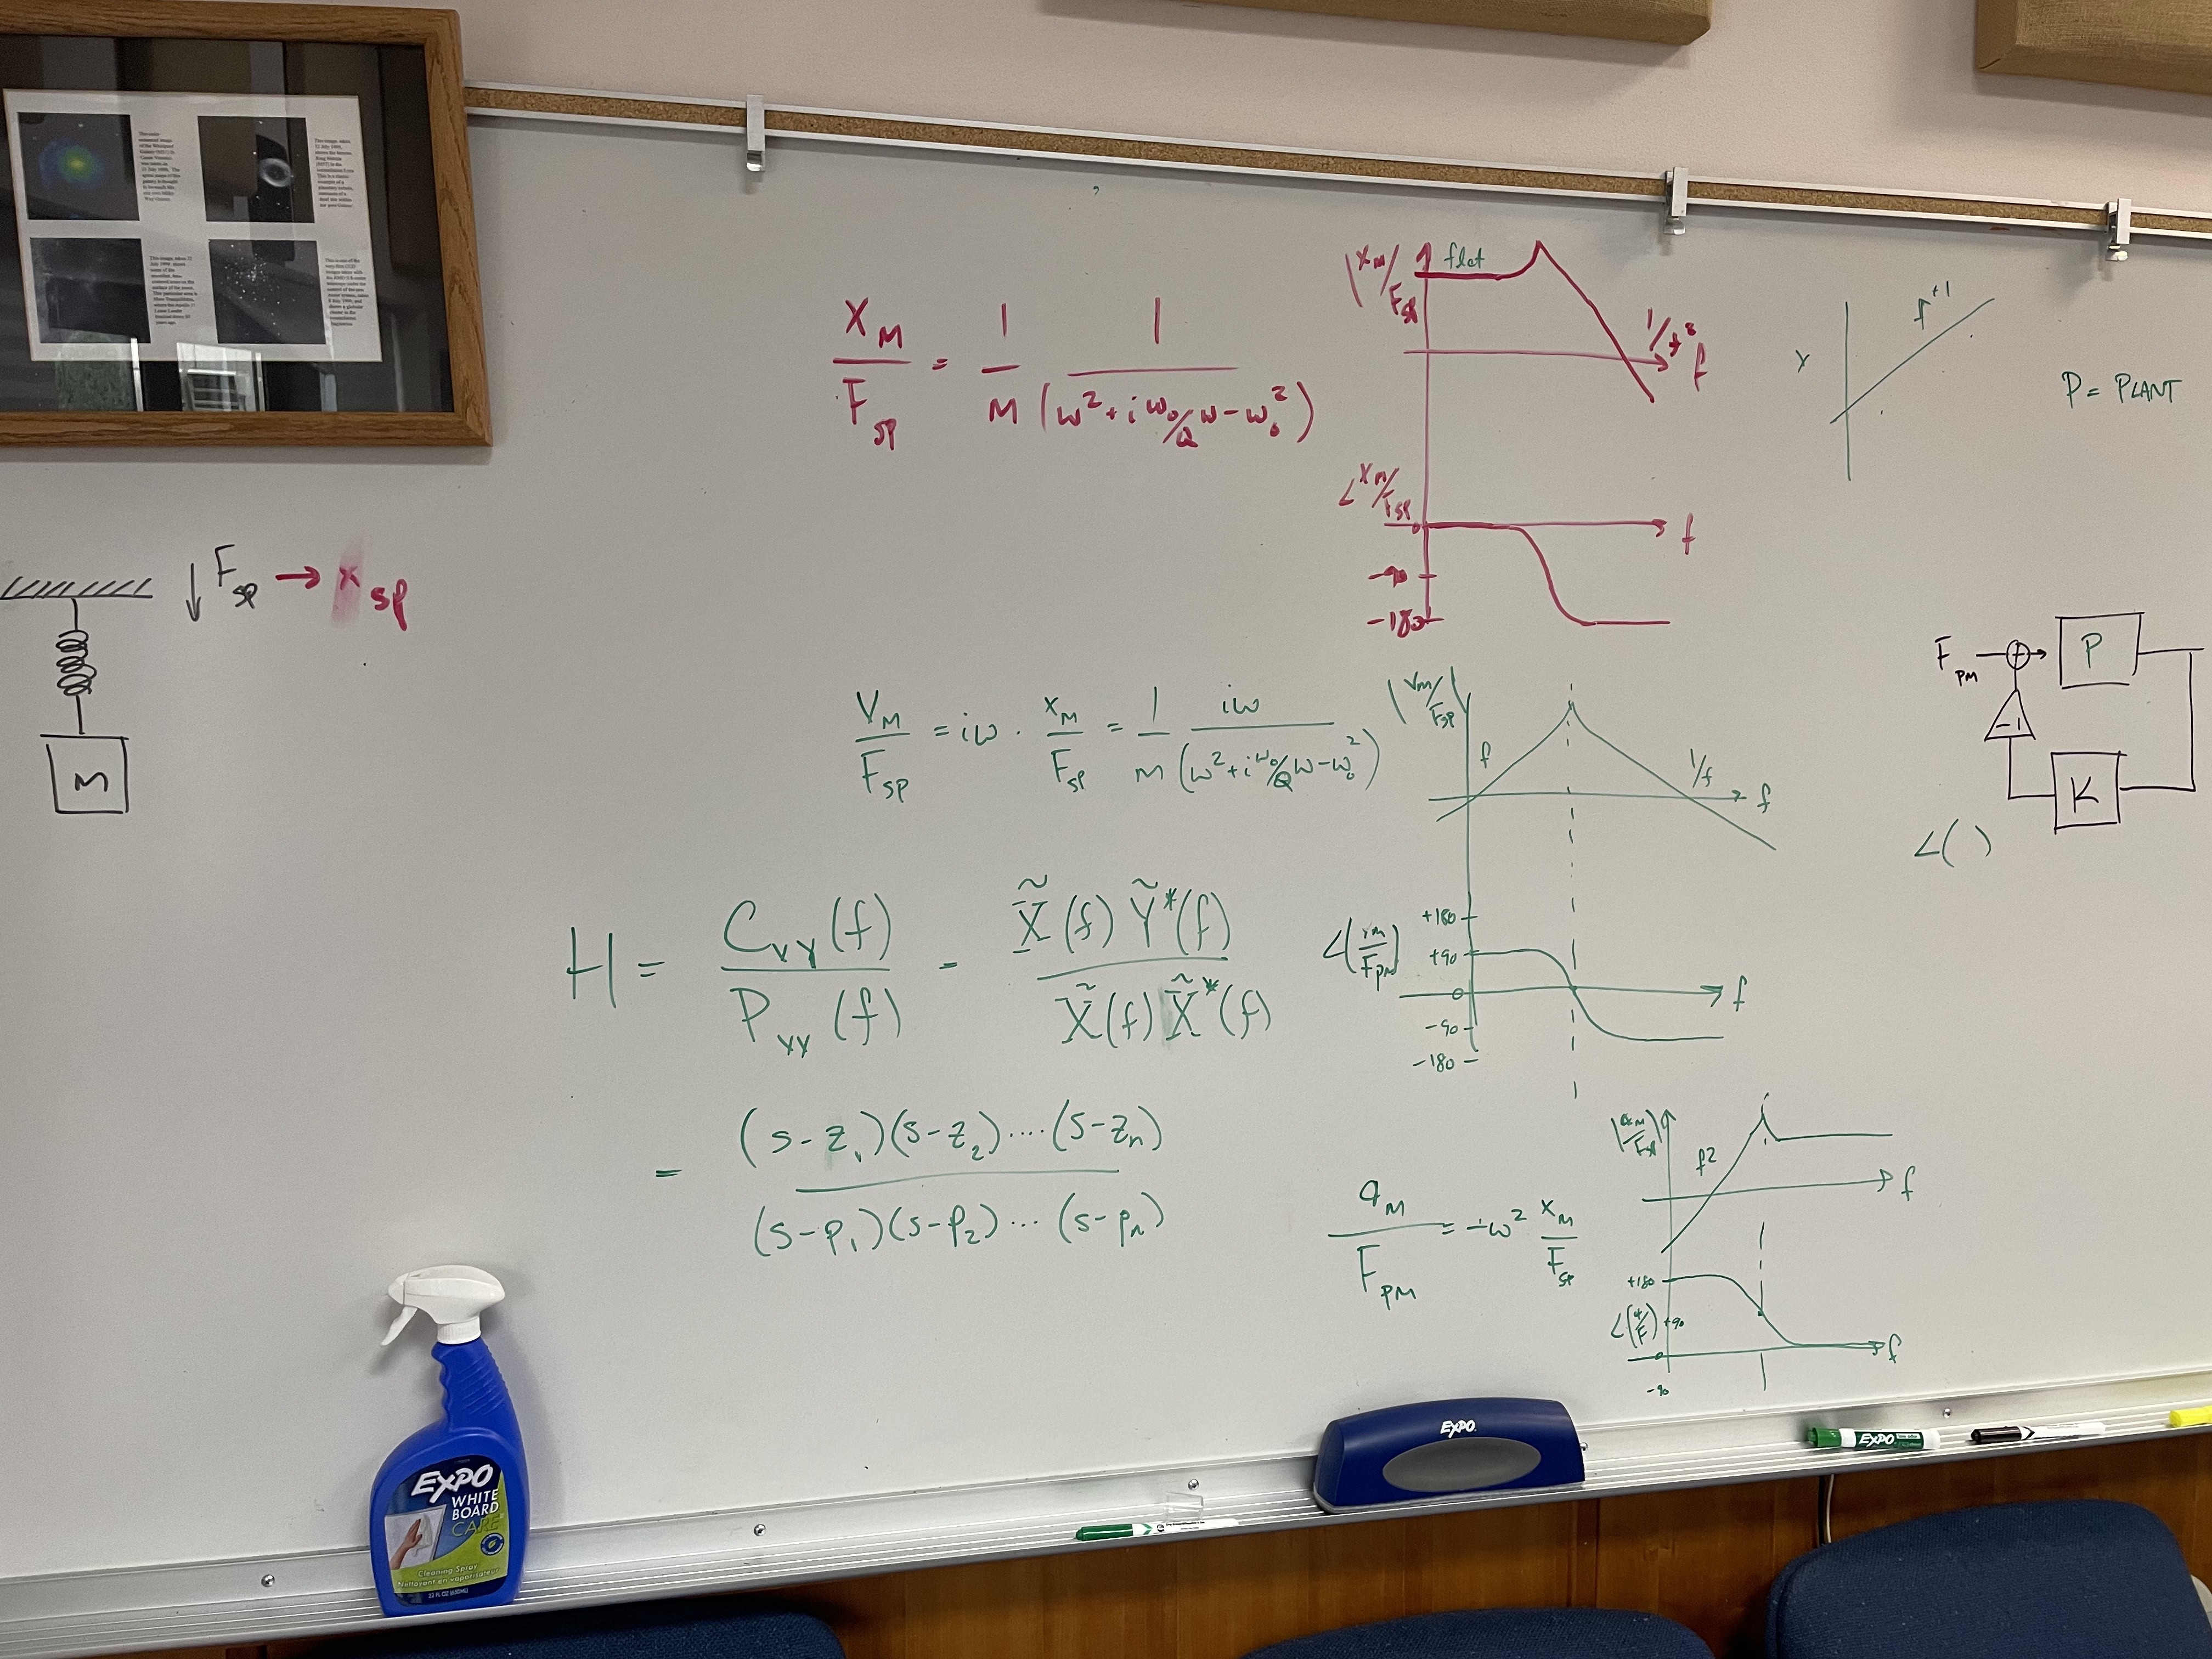 X_M / F_sp = 1/M 1/(ω² + i ω₀/Q ω - ω₀²)
|X_M/F_sp|
flat
1/f²
f
∠X_M/F_sp
0
-90
-180
f
f⁺¹
P = PLANT
↓ F_sp → x_sp
M
V_M / F_sp = iω · X_M / F_sp = 1/M iω/(ω² + i ω₀/Q ω - ω₀²)
|V_M/F_sp|
f
1/f
f
F_PM
+
P
-1
K
∠( )
∠(V_M/F_PM)
+180
+90
0
-90
-180
f
H = C_XY(f) / P_XX(f) = X̃(f) Ỹ*(f) / X̃(f) X̃*(f)
= (s-z₁)(s-z₂)....(s-zₙ) / (s-p₁)(s-p₂)...(s-pₙ)
a_M / F_PM = -ω² X_M / F_sp
|a_M/F_sp|
f²
f
+180
∠(a/F) +90
0
-90
f
EXPO
WHITE
BOARD
CARE
Cleaning Spray
Nettoyant en vaporisateur
EXPO
EXPO